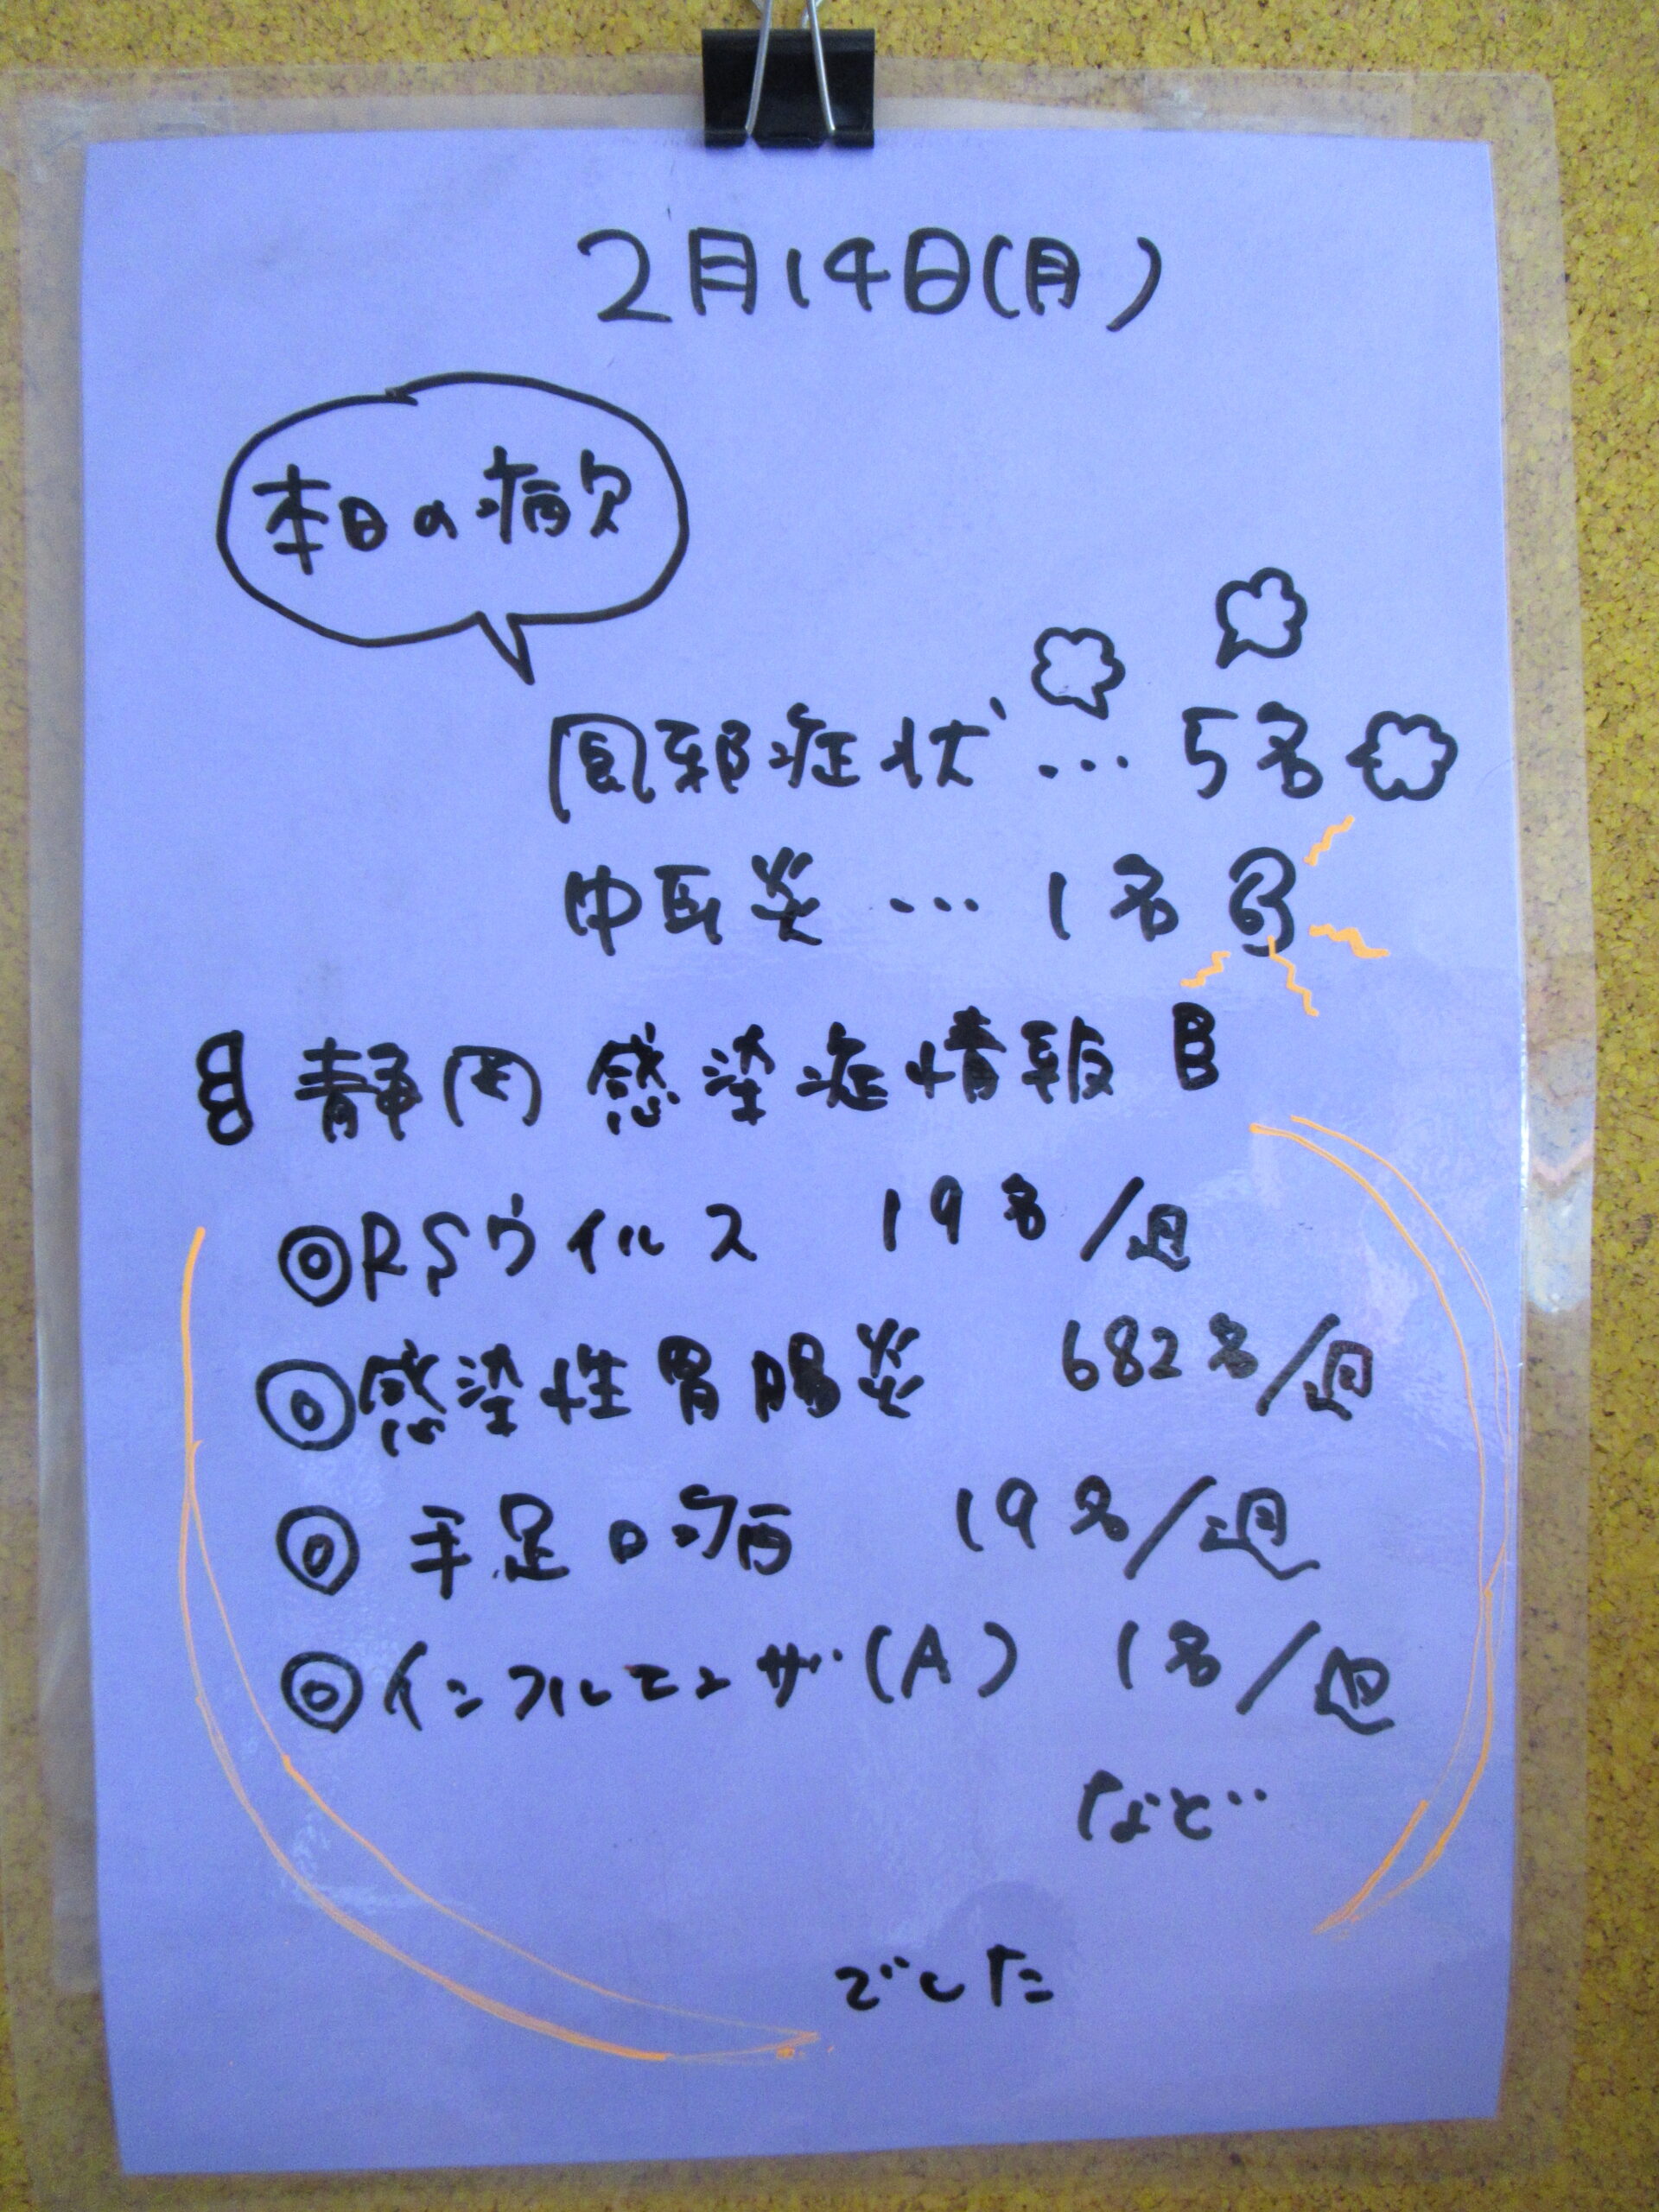 2月14日(月)
本日の病欠
風邪症状…5名
中耳炎…1名
静岡 感染症情報
◎RSウイルス 19名/週
◎感染性胃腸炎 682名/週
◎手足口病 19名/週
◎インフルエンザ(A) 1名/週
など…
でした